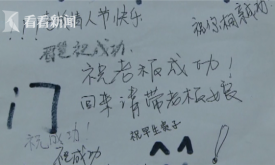 看看新闻
情人节快乐
祝你相亲成功
祝成功
祝老板成功！
回来请带老板娘
祝成功！
祝早生贵子
祝成功